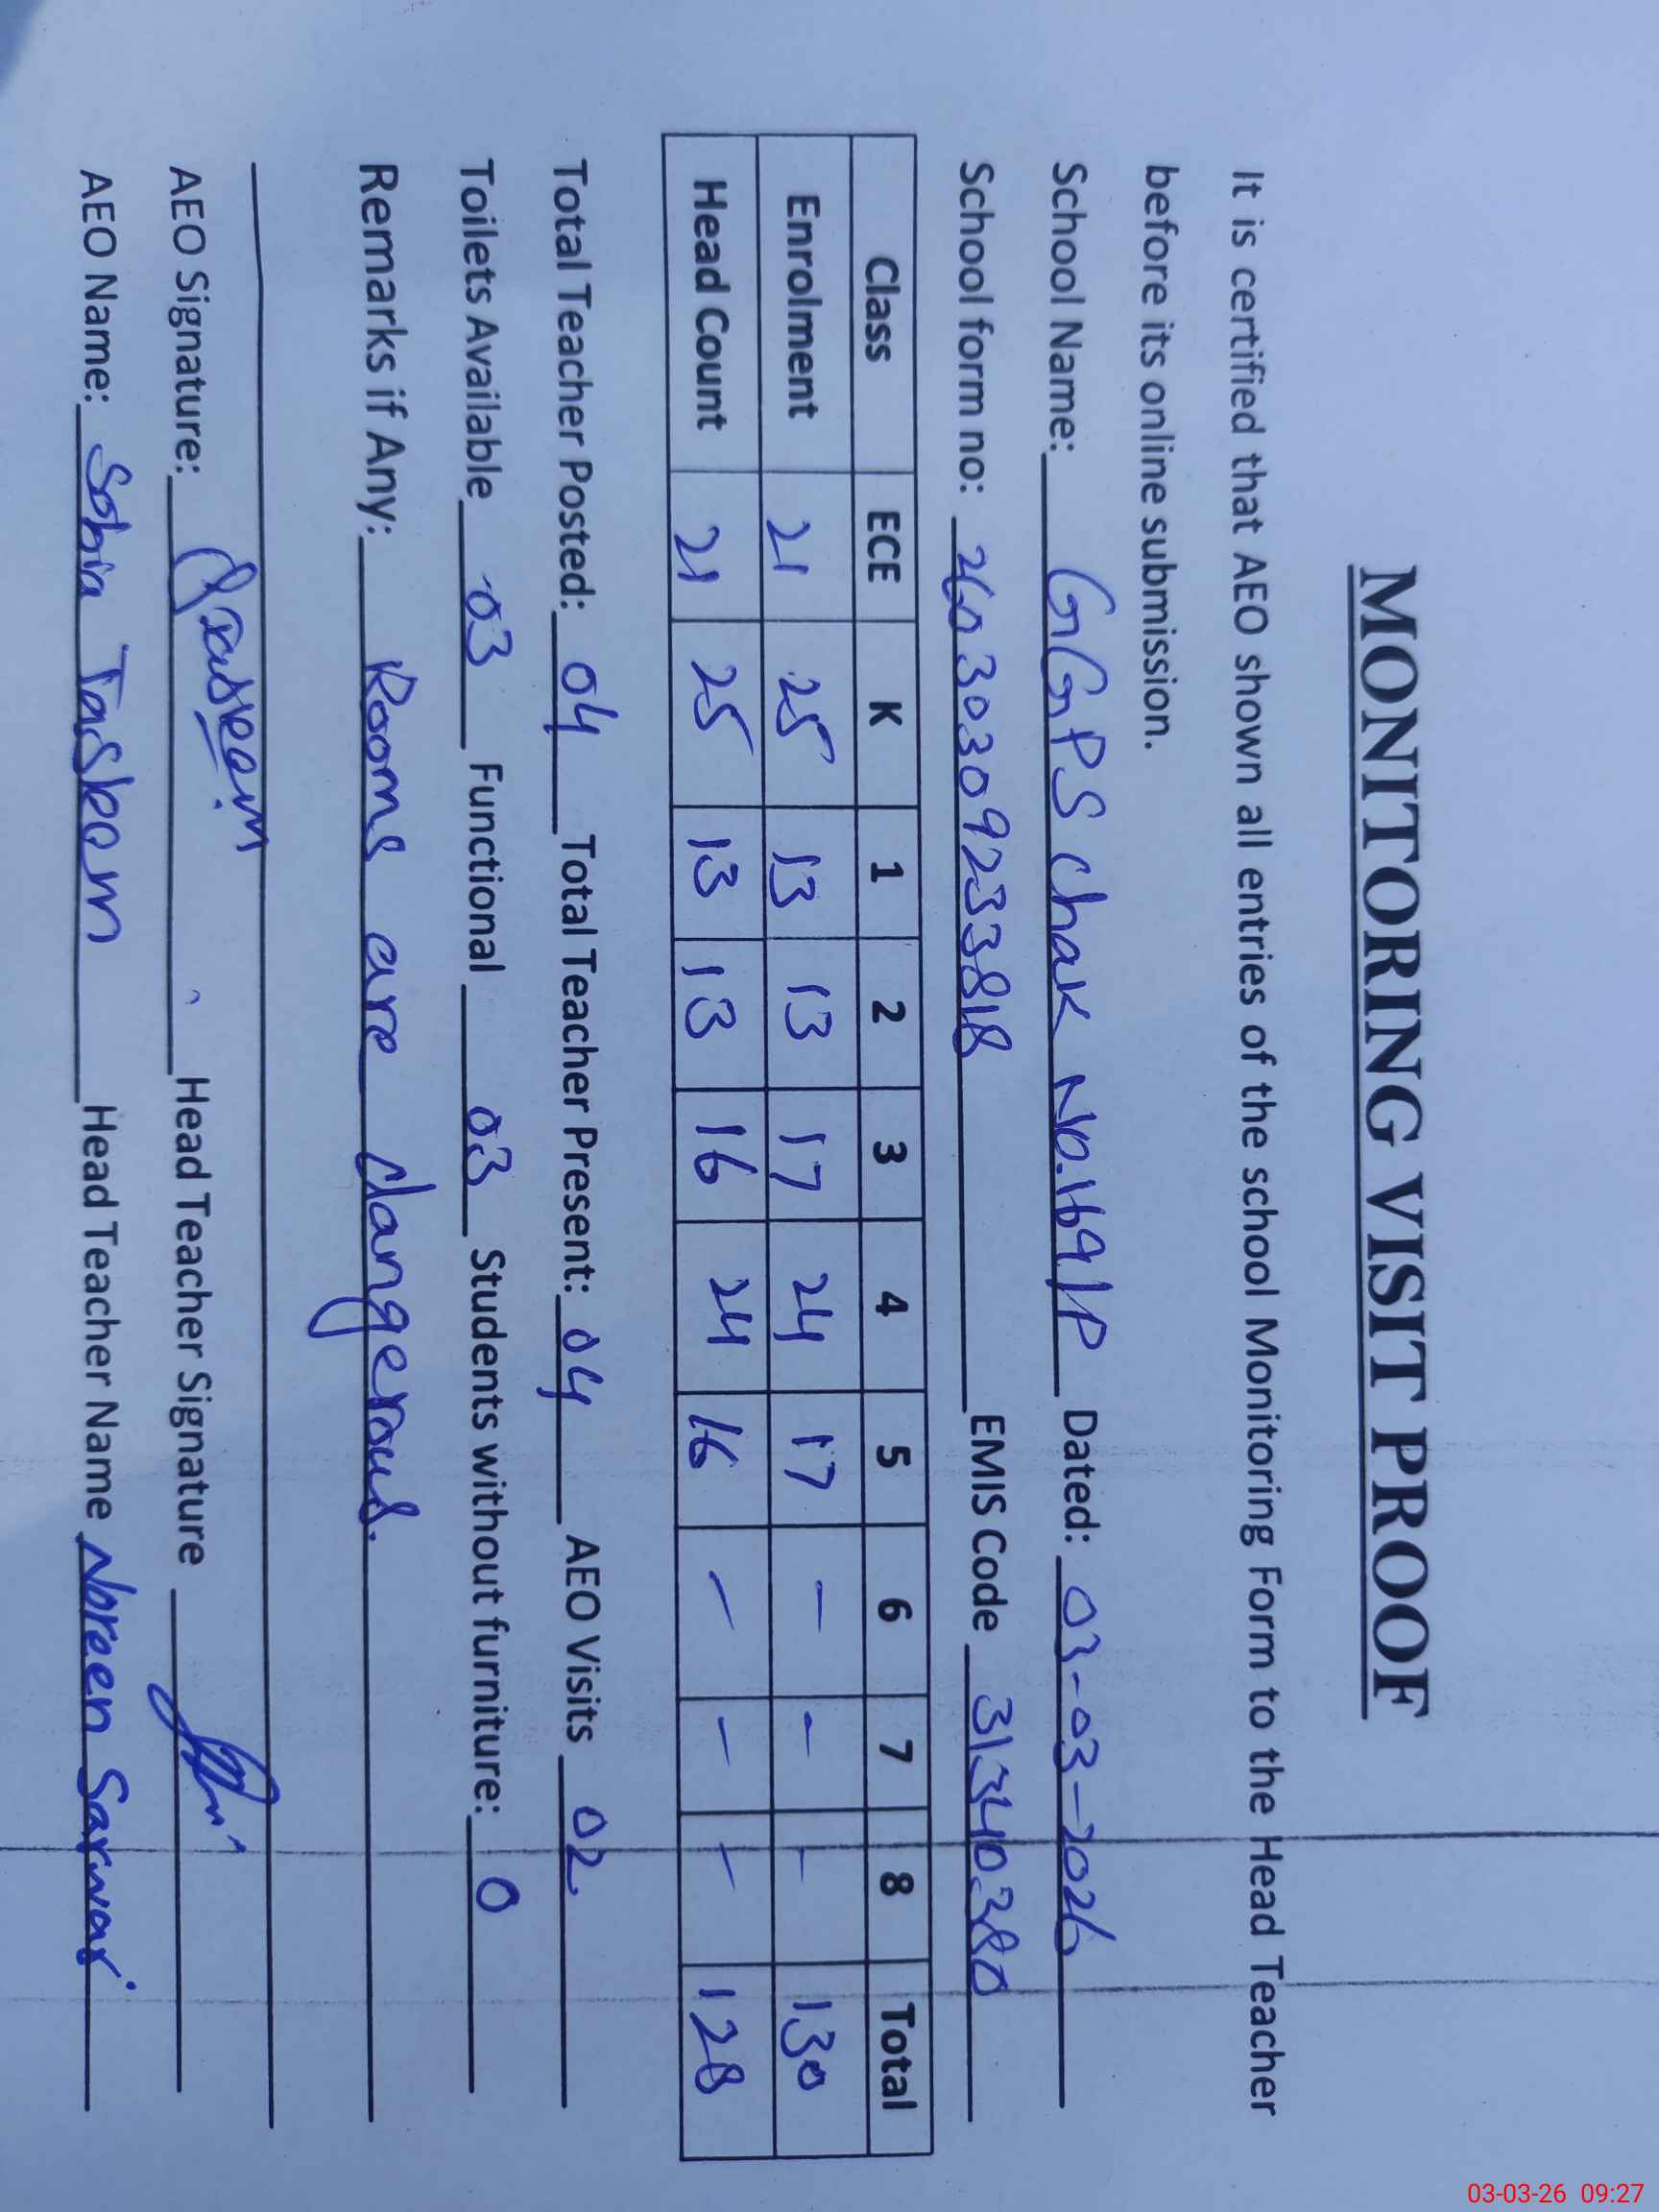 MONITORING VISIT PROOF
It is certified that AEO shown all entries of the school Monitoring Form to the Head Teacher
before its online submission.
School Name: GGPS Chak No.169/P Dated: 03-03-2026
School form no: 26030309233818 EMIS Code 31340380
Class ECE K 1 2 3 4 5 6 7 8 Total
Enrolment 21 25 13 13 17 24 17 – – – 130
Head Count 21 25 13 13 16 24 16 – – – 128
Total Teacher Posted: 04 Total Teacher Present: 04 AEO Visits 02
Toilets Available 03 Functional 03 Students without furniture: 0
Remarks if Any: Rooms are dangerous.
AEO Signature: Head Teacher Signature
AEO Name: Sobia Tasleem Head Teacher Name Noreen Sarwar
03-03-26 09:27